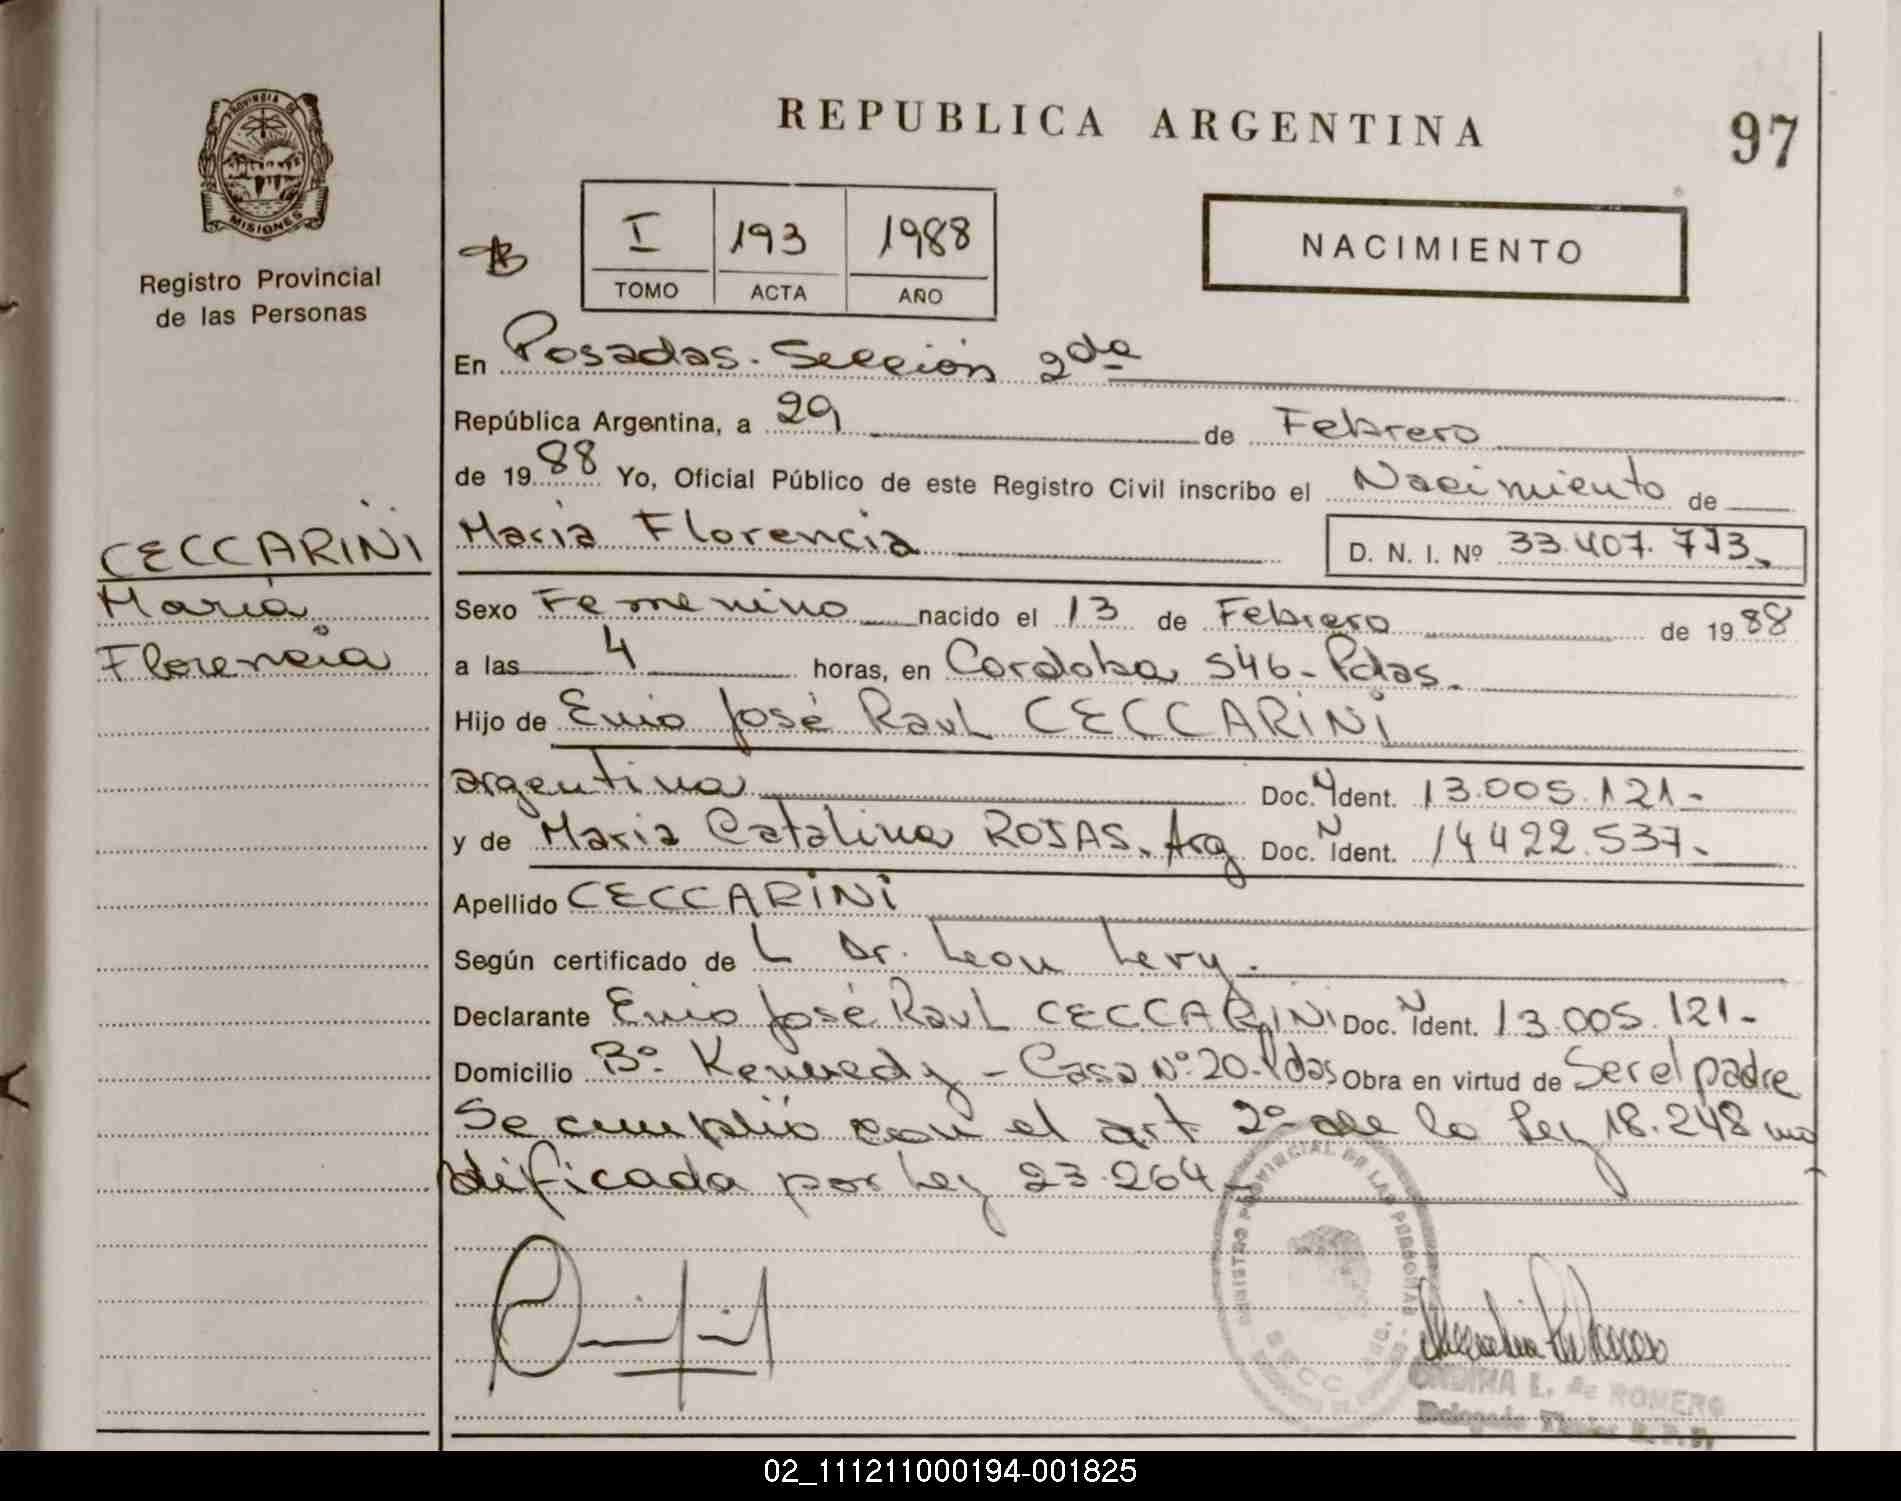 REPUBLICA ARGENTINA
97
PROVINCIA DE
MISIONES
Registro Provincial
de las Personas
I 193 1988
TOMO ACTA AÑO
NACIMIENTO
En Posadas. Sección 2da
República Argentina, a 29 de Febrero
de 1988 Yo, Oficial Público de este Registro Civil inscribo el Nacimiento de
CECCARINI
María
Florencia
Maria Florencia D. N. I. Nº 33.407.773
Sexo Femenino nacido el 13 de Febrero de 1988
a las 4 horas, en Cordoba 546 - Pdas.
Hijo de Enio José Raul CECCARINI
argentina Doc. N Ident. 13.005.121-
y de Maria Catalina ROJAS. Arg Doc. N Ident. 14422.537-
Apellido CECCARINI
Según certificado de L Dr. Leon Levy.
Declarante Enio José Raul CECCARINI Doc. N Ident. 13.005.121-
Domicilio Bº. Kennedy - Casa Nº 20. Pdas Obra en virtud de Ser el padre
Se cumplió con el art 2º de la Ley 18.248 mo
dificada por Ley 23.264
REGISTRO PROVINCIAL DE LAS PERSONAS
SECC. 2da.
ONDINA L. de ROMERO
Delegada Titular R.P.P.
02_111211000194-001825